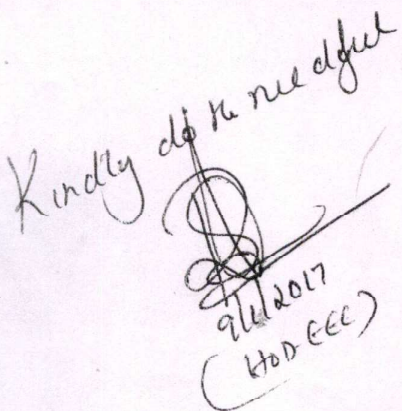 Kindly do the needful
9/1/2017
(HOD EEE)